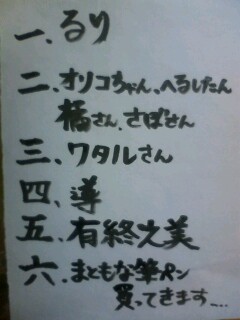 一、るり
二、オリコちゃん、へるしたん
橘さん、さばさん
三、ワタルさん
四、導
五、有終之美
六、まともな筆ペン
買ってきます…